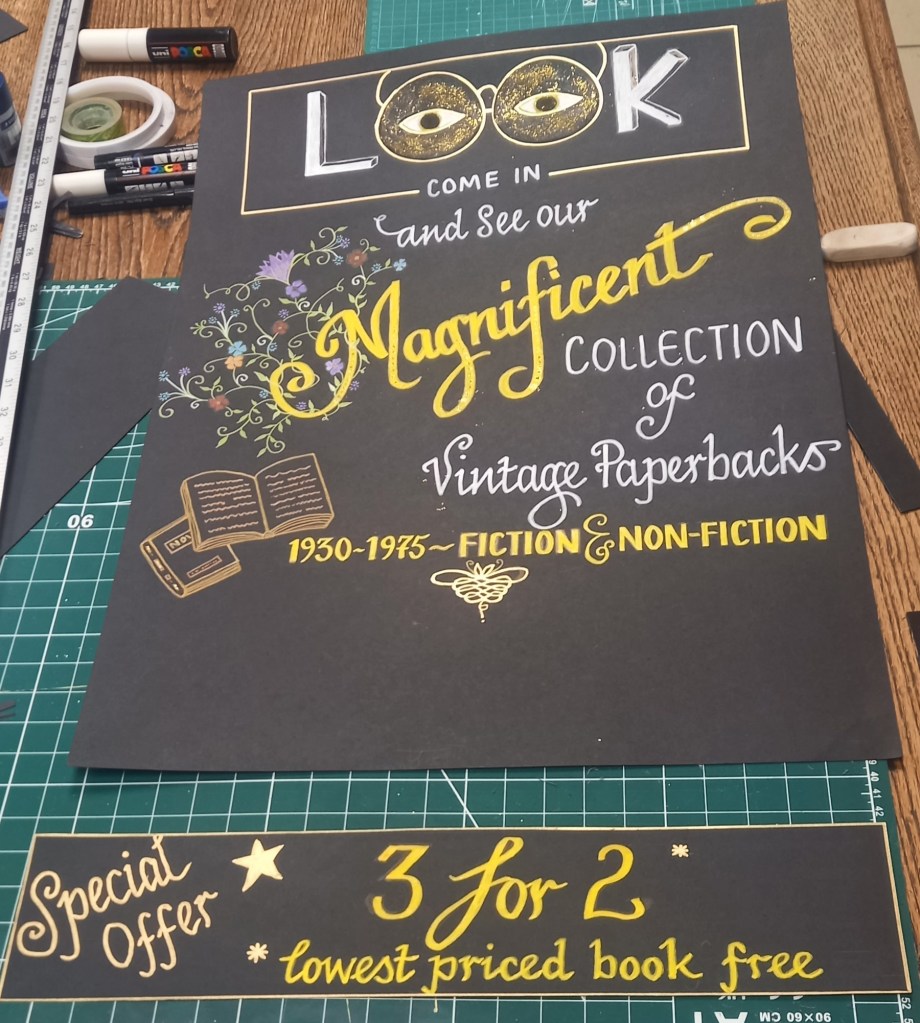 LOOK
COME IN
and See our
Magnificent
COLLECTION
of
Vintage Paperbacks
1930~1975~ FICTION & NON-FICTION
Special
Offer
3 for 2 *
* lowest priced book free
uni POSCA
POSCA
90
90×60 CM